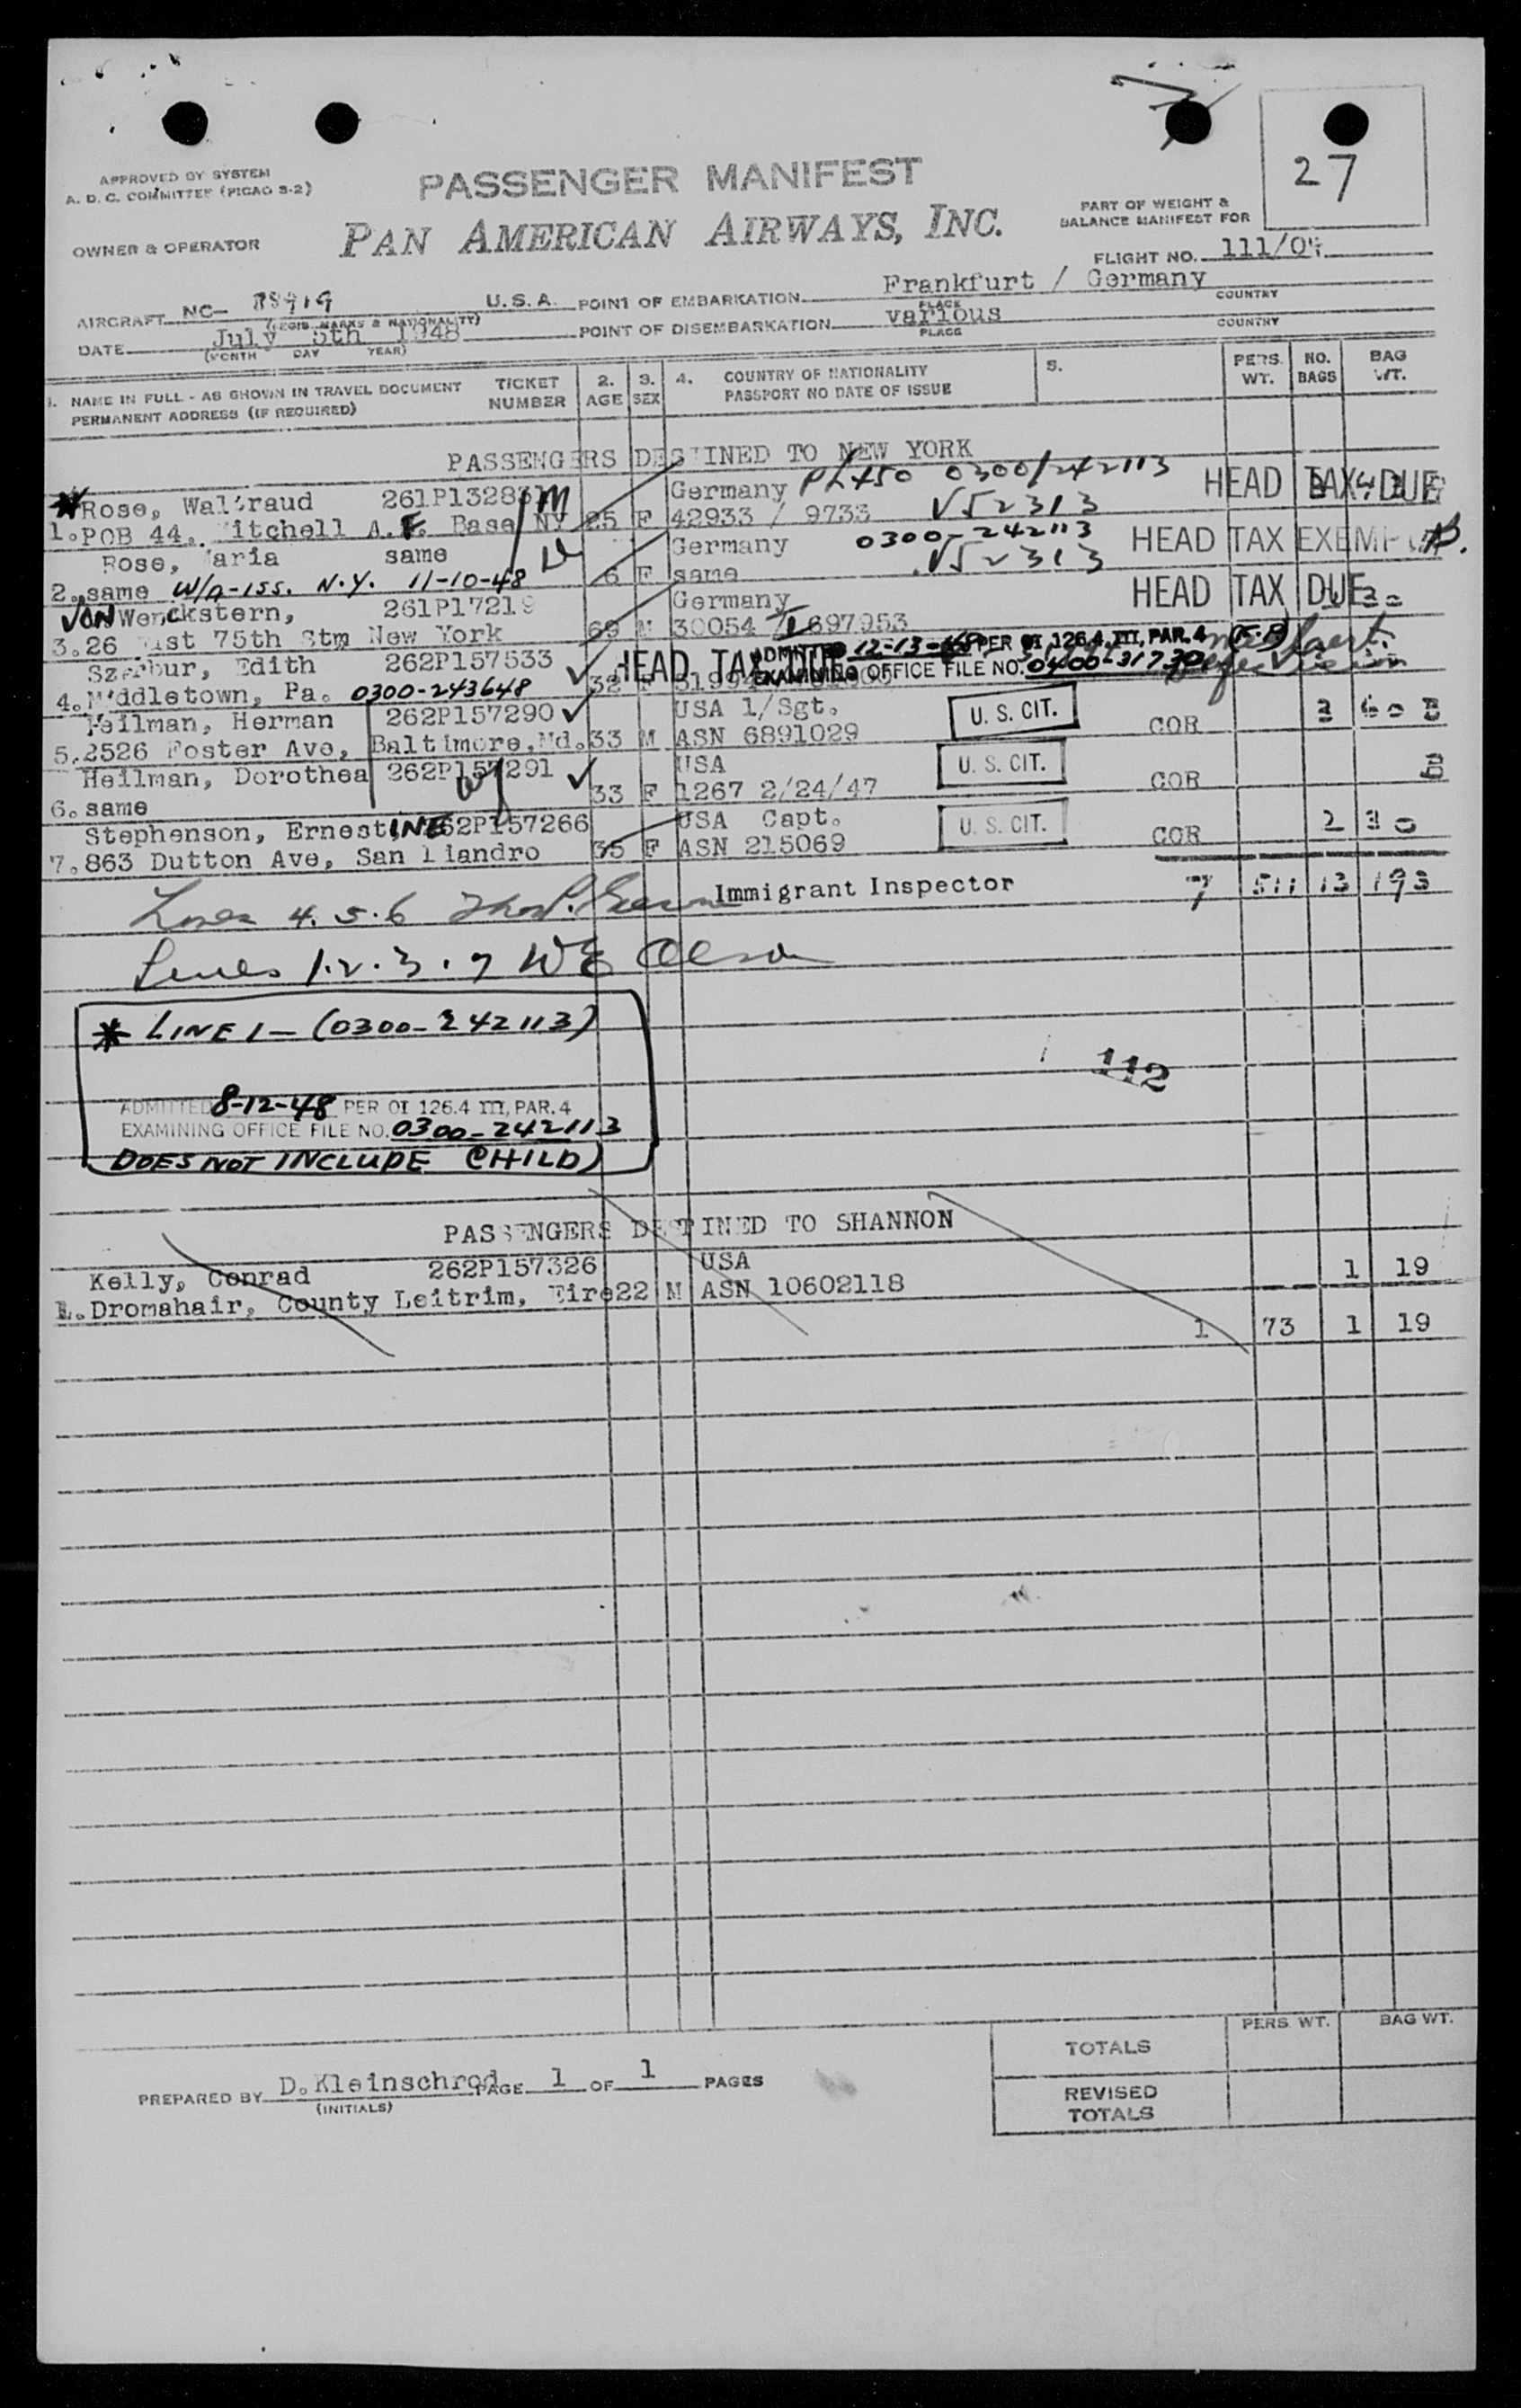 27
APPROVED BY SYSTEM
A. D. C. COMMITTEE (PICAO S-2)
PASSENGER MANIFEST
PART OF WEIGHT &
BALANCE MANIFEST FOR
OWNER & OPERATOR
PAN AMERICAN AIRWAYS, INC.
FLIGHT NO. 111/04
AIRCRAFT NC- U.S.A. POINT OF EMBARKATION Frankfurt / Germany
(REGIS. MARKS & NATIONALITY) PLACE COUNTRY
DATE July 5th 1948 POINT OF DISEMBARKATION various
(MONTH DAY YEAR) PLACE COUNTRY
1. NAME IN FULL - AS SHOWN IN TRAVEL DOCUMENT TICKET 2. 3. 4. COUNTRY OF NATIONALITY 5. PERS. NO. BAG
PERMANENT ADDRESS (IF REQUIRED) NUMBER AGE SEX PASSPORT NO DATE OF ISSUE WT. BAGS WT.
PASSENGERS DESTINED TO NEW YORK
* Rose, Waltraud Germany 0300/242113 HEAD TAX DUE
1. POB 44. Mitchell A.F. Base NY 25 F 42933 / 9733 V52313
Rose, Maria same Germany 0300-242113 HEAD TAX EXEMPT
2. same W/a-iss. N.Y. 11-10-48 6 F same V52313
VON Wenckstern, 261P17219 Germany HEAD TAX DUE
3. 26 East 75th Stm New York 69 M 30054 / I 697953
Edith 262P157533 HEAD TAX DUE ADMITTED 12-13-48 PER OI 126.4 III, PAR. 4
4. Middletown, Pa. 0300-243648 32 F EXAMINING OFFICE FILE NO. 0400-31730
Heilman, Herman 262P157290 USA 1/Sgt. U. S. CIT. COR
5. 2526 Foster Ave, Baltimore, Md. 33 M ASN 6891029
Heilman, Dorothea 262P157291 USA U. S. CIT. COR
6. same 33 F 1267 2/24/47
Stephenson, ErnestINE 262P157266 USA Capt. U. S. CIT. COR 2 30
7. 863 Dutton Ave, San Liandro 35 F ASN 215069
Lines 4.5.6 Immigrant Inspector 7 511 13 193
Lines 1.2.3.7 WE Olson
* LINE 1 - (0300-242113)
112
ADMITTED 8-12-48 PER OI 126.4 III, PAR. 4
EXAMINING OFFICE FILE NO. 0300-242113
DOES NOT INCLUDE CHILD)
PASSENGERS DESTINED TO SHANNON
Kelly, Conrad 262P157326 USA 1 19
1. Dromahair, County Leitrim, Eire 22 M ASN 10602118
1 73 1 19
PERS. WT. BAG WT.
TOTALS
PREPARED BY D.Kleinschrod PAGE 1 OF 1 PAGES
(INITIALS)
REVISED
TOTALS